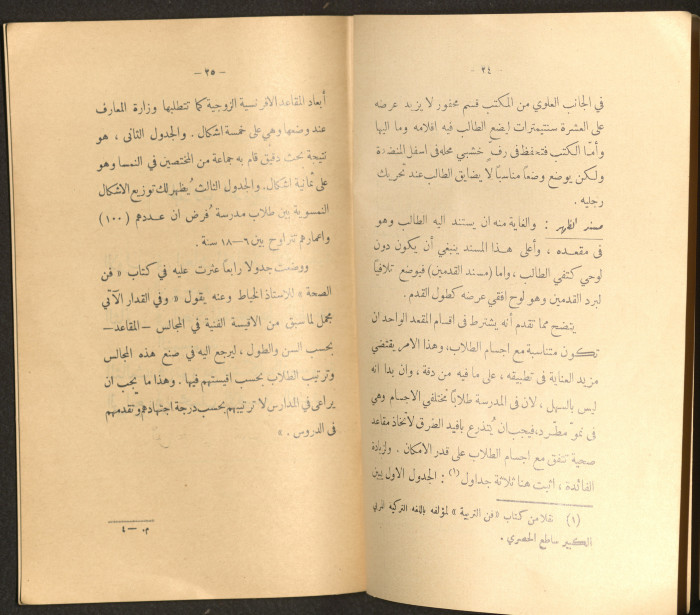 — ٢٤ —
في الجانب العلوي من المكتب قسم محفور لا يزيد عرضه
على العشرة سنتيمترات ليضع الطالب فيه اقلامه وما اليها
وأما الكتب فتحفظ في رف خشبي محله في اسفل المنضدة
ولكن يوضع وضعاً مناسباً لا يضايق الطالب عند تحريك
رجليه .
مسند الظهر : والغاية منه ان يستند اليه الطالب وهو
في مقعده ، وأعلى هذا المسند ينبغي أن يكون دون
لوحي كتفي الطالب ، واما (مسند القدمين) فيوضع تلافياً
لبرد القدمين وهو لوح افقي عرضه كطول القدم .
يتضح مما تقدم أنه يشترط في اقسام المقعد الواحد ان
تكون متناسبة مع اجسام الطلاب، وهذا الامر يقتضي
مزيد العناية في تطبيقه ، على ما فيه من دقة ، وان بدا انه
ليس بالسهل ، لان في المدرسة طلاباً مختلفي الاجسام وهي
في نمو مطّرد، فيجب ان يُتذرع بأفيد الطرق لاتخاذ مقاعد
صحية تتفق مع اجسام الطلاب على قدر الامكان . ولزيادة
الفائدة ، اثبت هنا ثلاثة جداول (١) : الجدول الاول يبين
(١) نقلا من كتاب « فن التربية » لمؤلفه باللغه التركيه المربي
الكبير ساطع الحصري .
— ٢٥ —
أبعاد المقاعد الافرنسية الزوجية كما تتطلبها وزارة المعارف
عند وضعها وهي على خمسة اشكال . والجدول الثاني ، هو
نتيجة بحث دقيق قام به جماعة من المختصين في النمسا وهو
على ثمانية اشكال. والجدول الثالث يُظهر لك توزيع الاشكال
النمسوية بين طلاب مدرسة فُرض ان عددهم (١٠٠)
واعمارهم تتراوح بين ٦-١٨ سنة .
ووضعت جدولا رابعاً عثرت عليه في كتاب « فن
الصحة » للاستاذ الخياط وعنه يقول « وفي القدار الآتي
مجمل لما سبق من الاقيسة الفنية في المجالس —المقاعد—
بحسب السن والطول ، ليرجع اليه في صنع هذه المجالس
وترتيب الطلاب بحسب اقيستهم فيها . وهذا ما يجب ان
يراعى في المدارس لا ترتيبهم بحسب درجة اجتهادهم وتقدمهم
في الدروس . »
م. — ٤